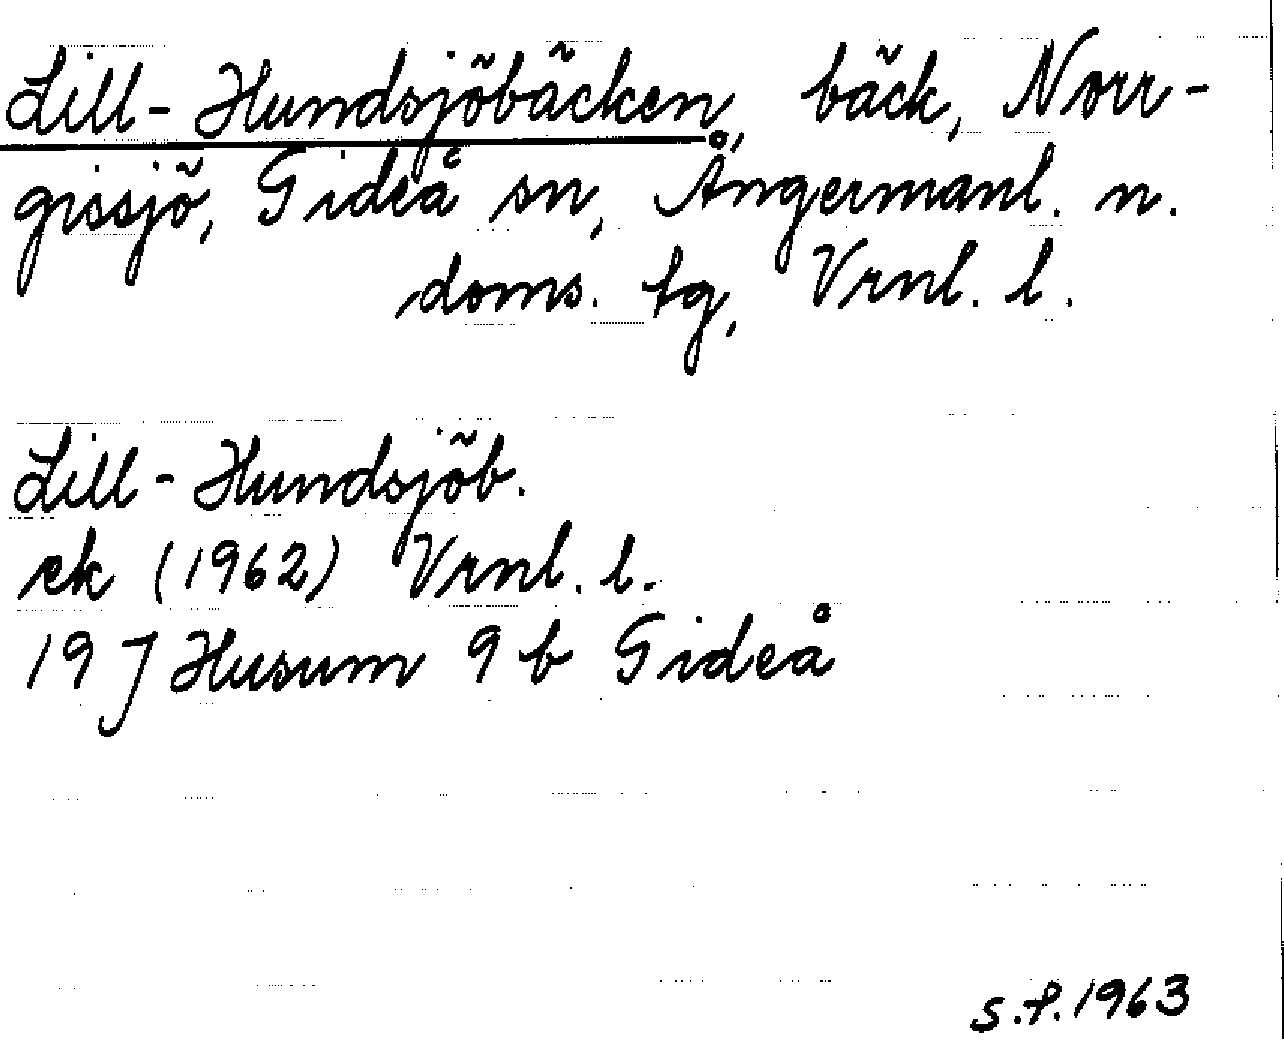 Lill-Hundsjöbäcken, bäck, Norr-
gissjö, Gideå sn, Ångermanl. n.
doms. tg, Vrnl. l.
Lill-Hundsjöb.
ek (1962) Vrnl. l.
19 J Husum 9 b Gideå
S.P. 1963